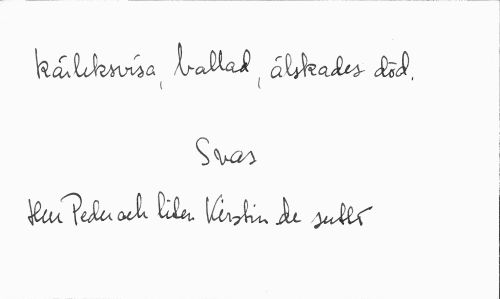 kärleksvisa, ballad, älskades död.
Svas
Herr Peder och liten Kirstin de